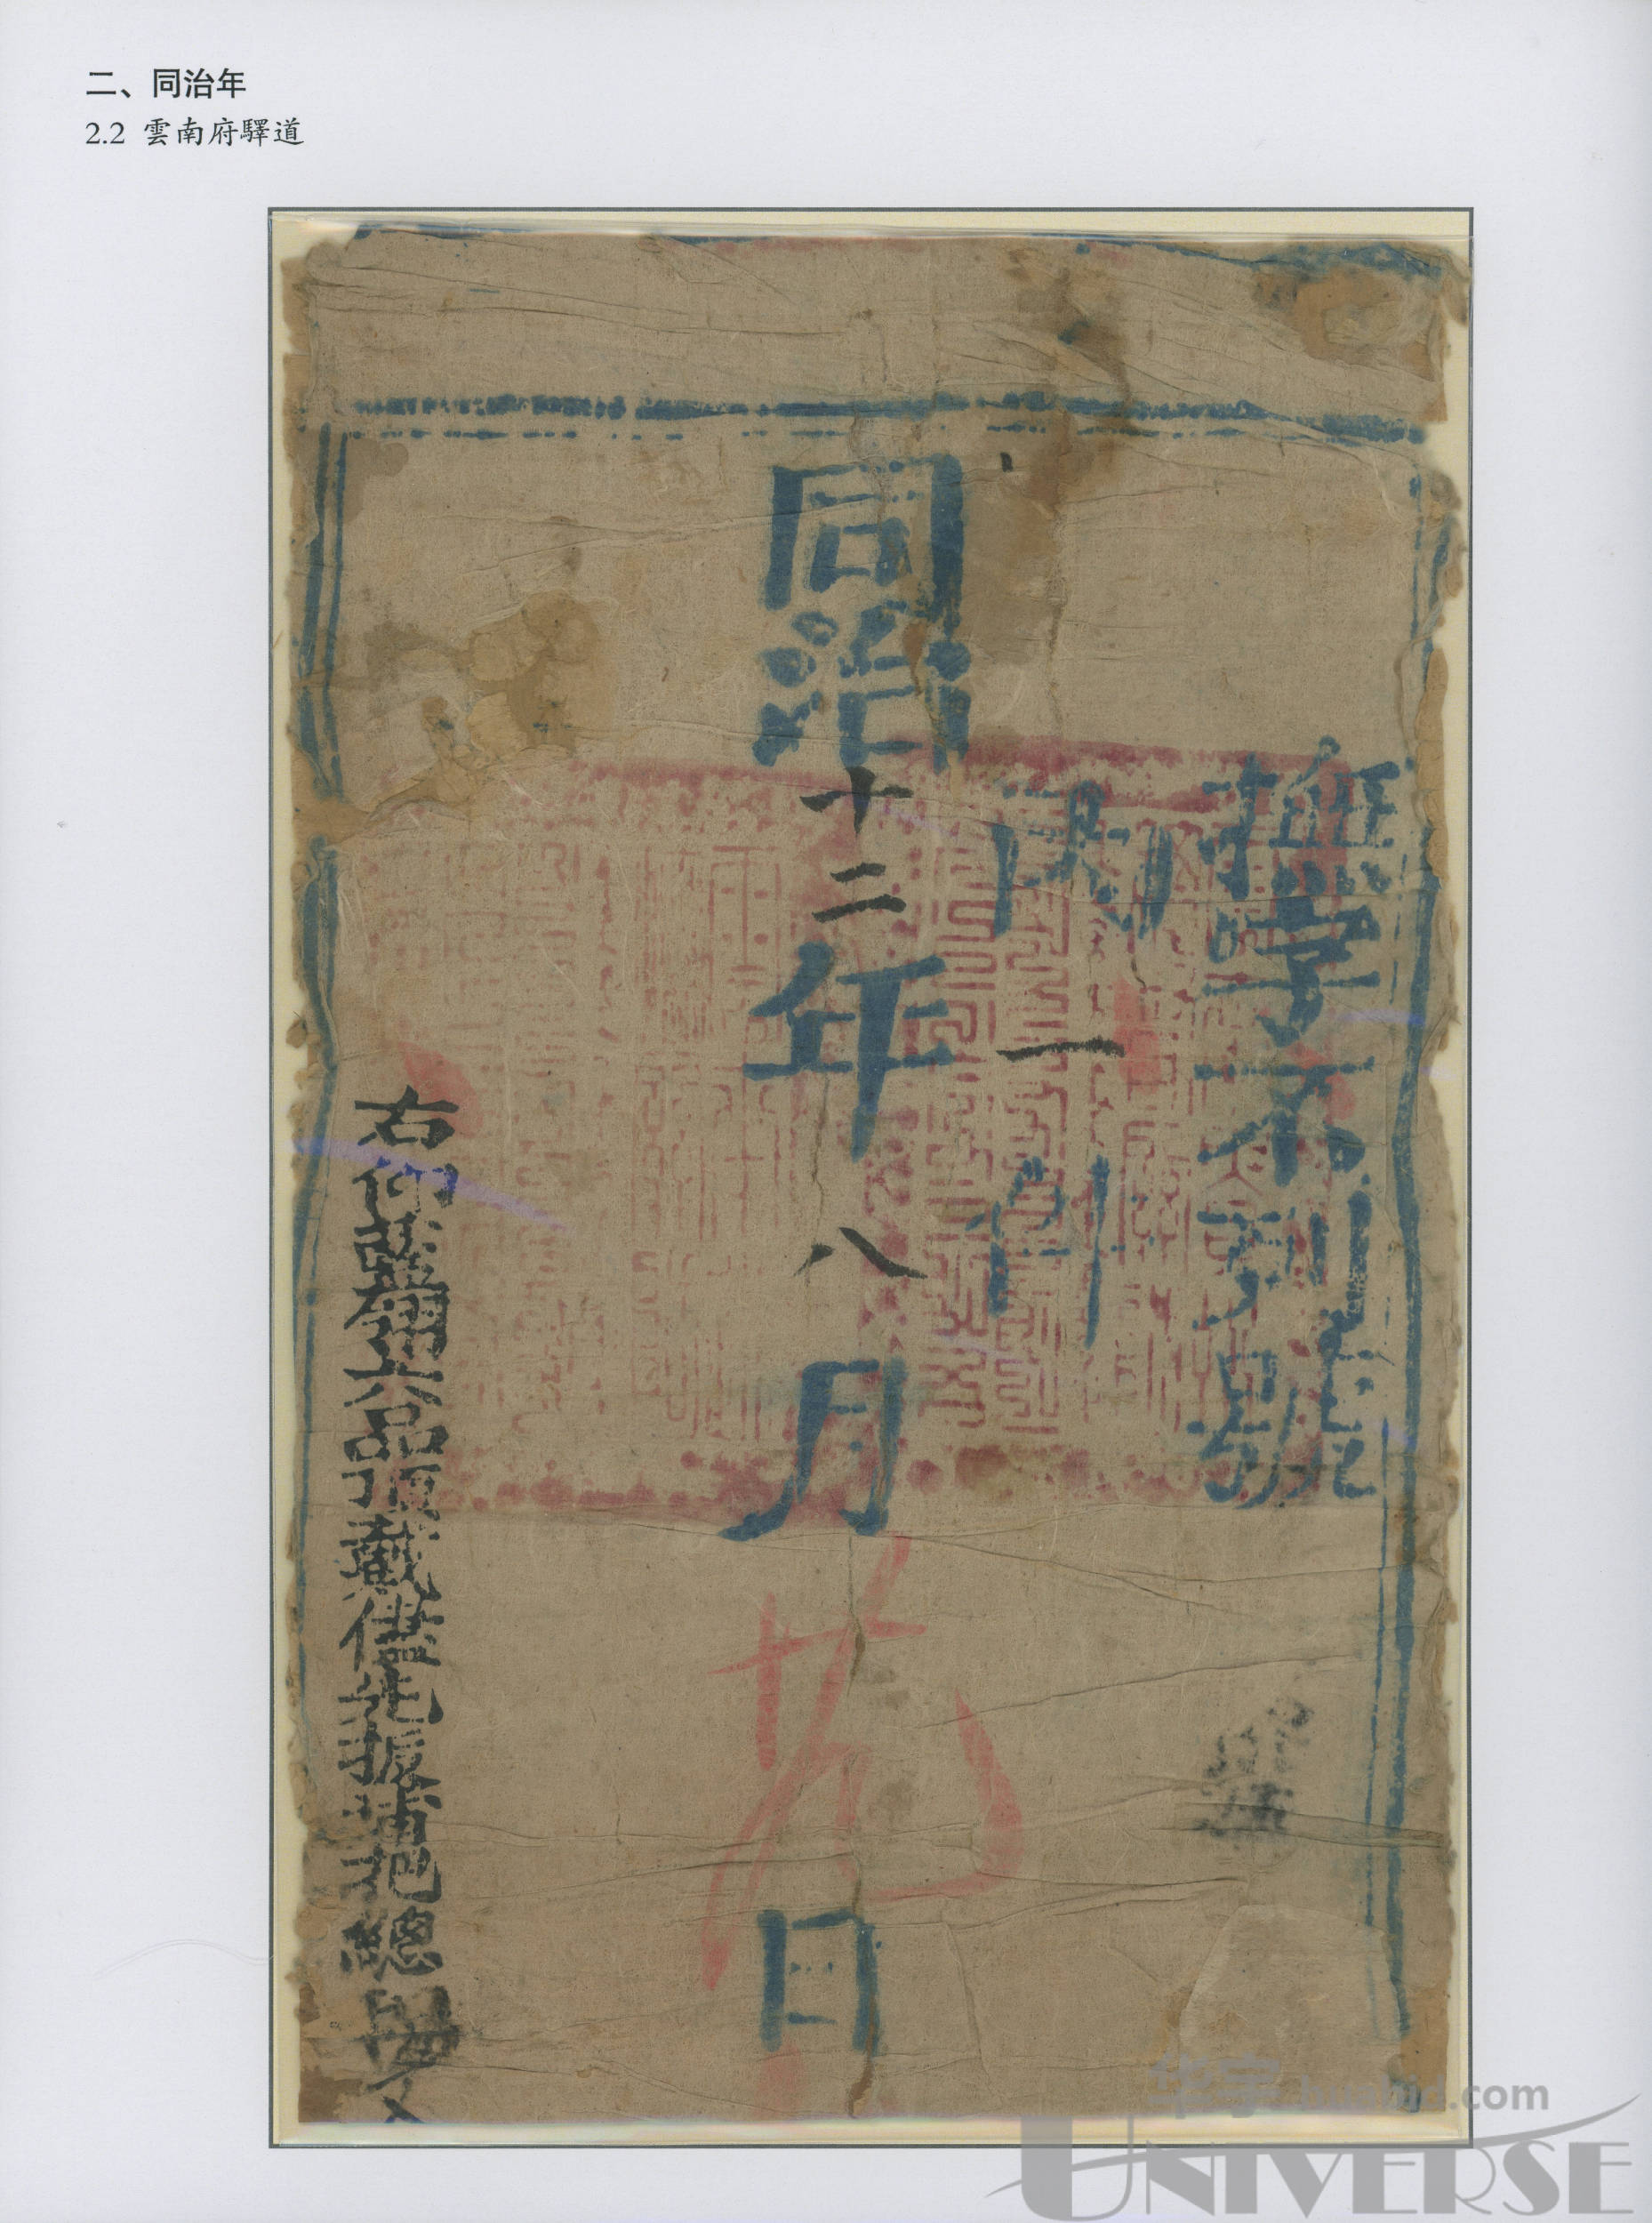 二、同治年
2.2 雲南府驛道
撫字不列號
內一件
同治十二年八月日
右仰藍翎六品頂戴儘先拔補把總
华宇 huabid.com
UNIVERSE